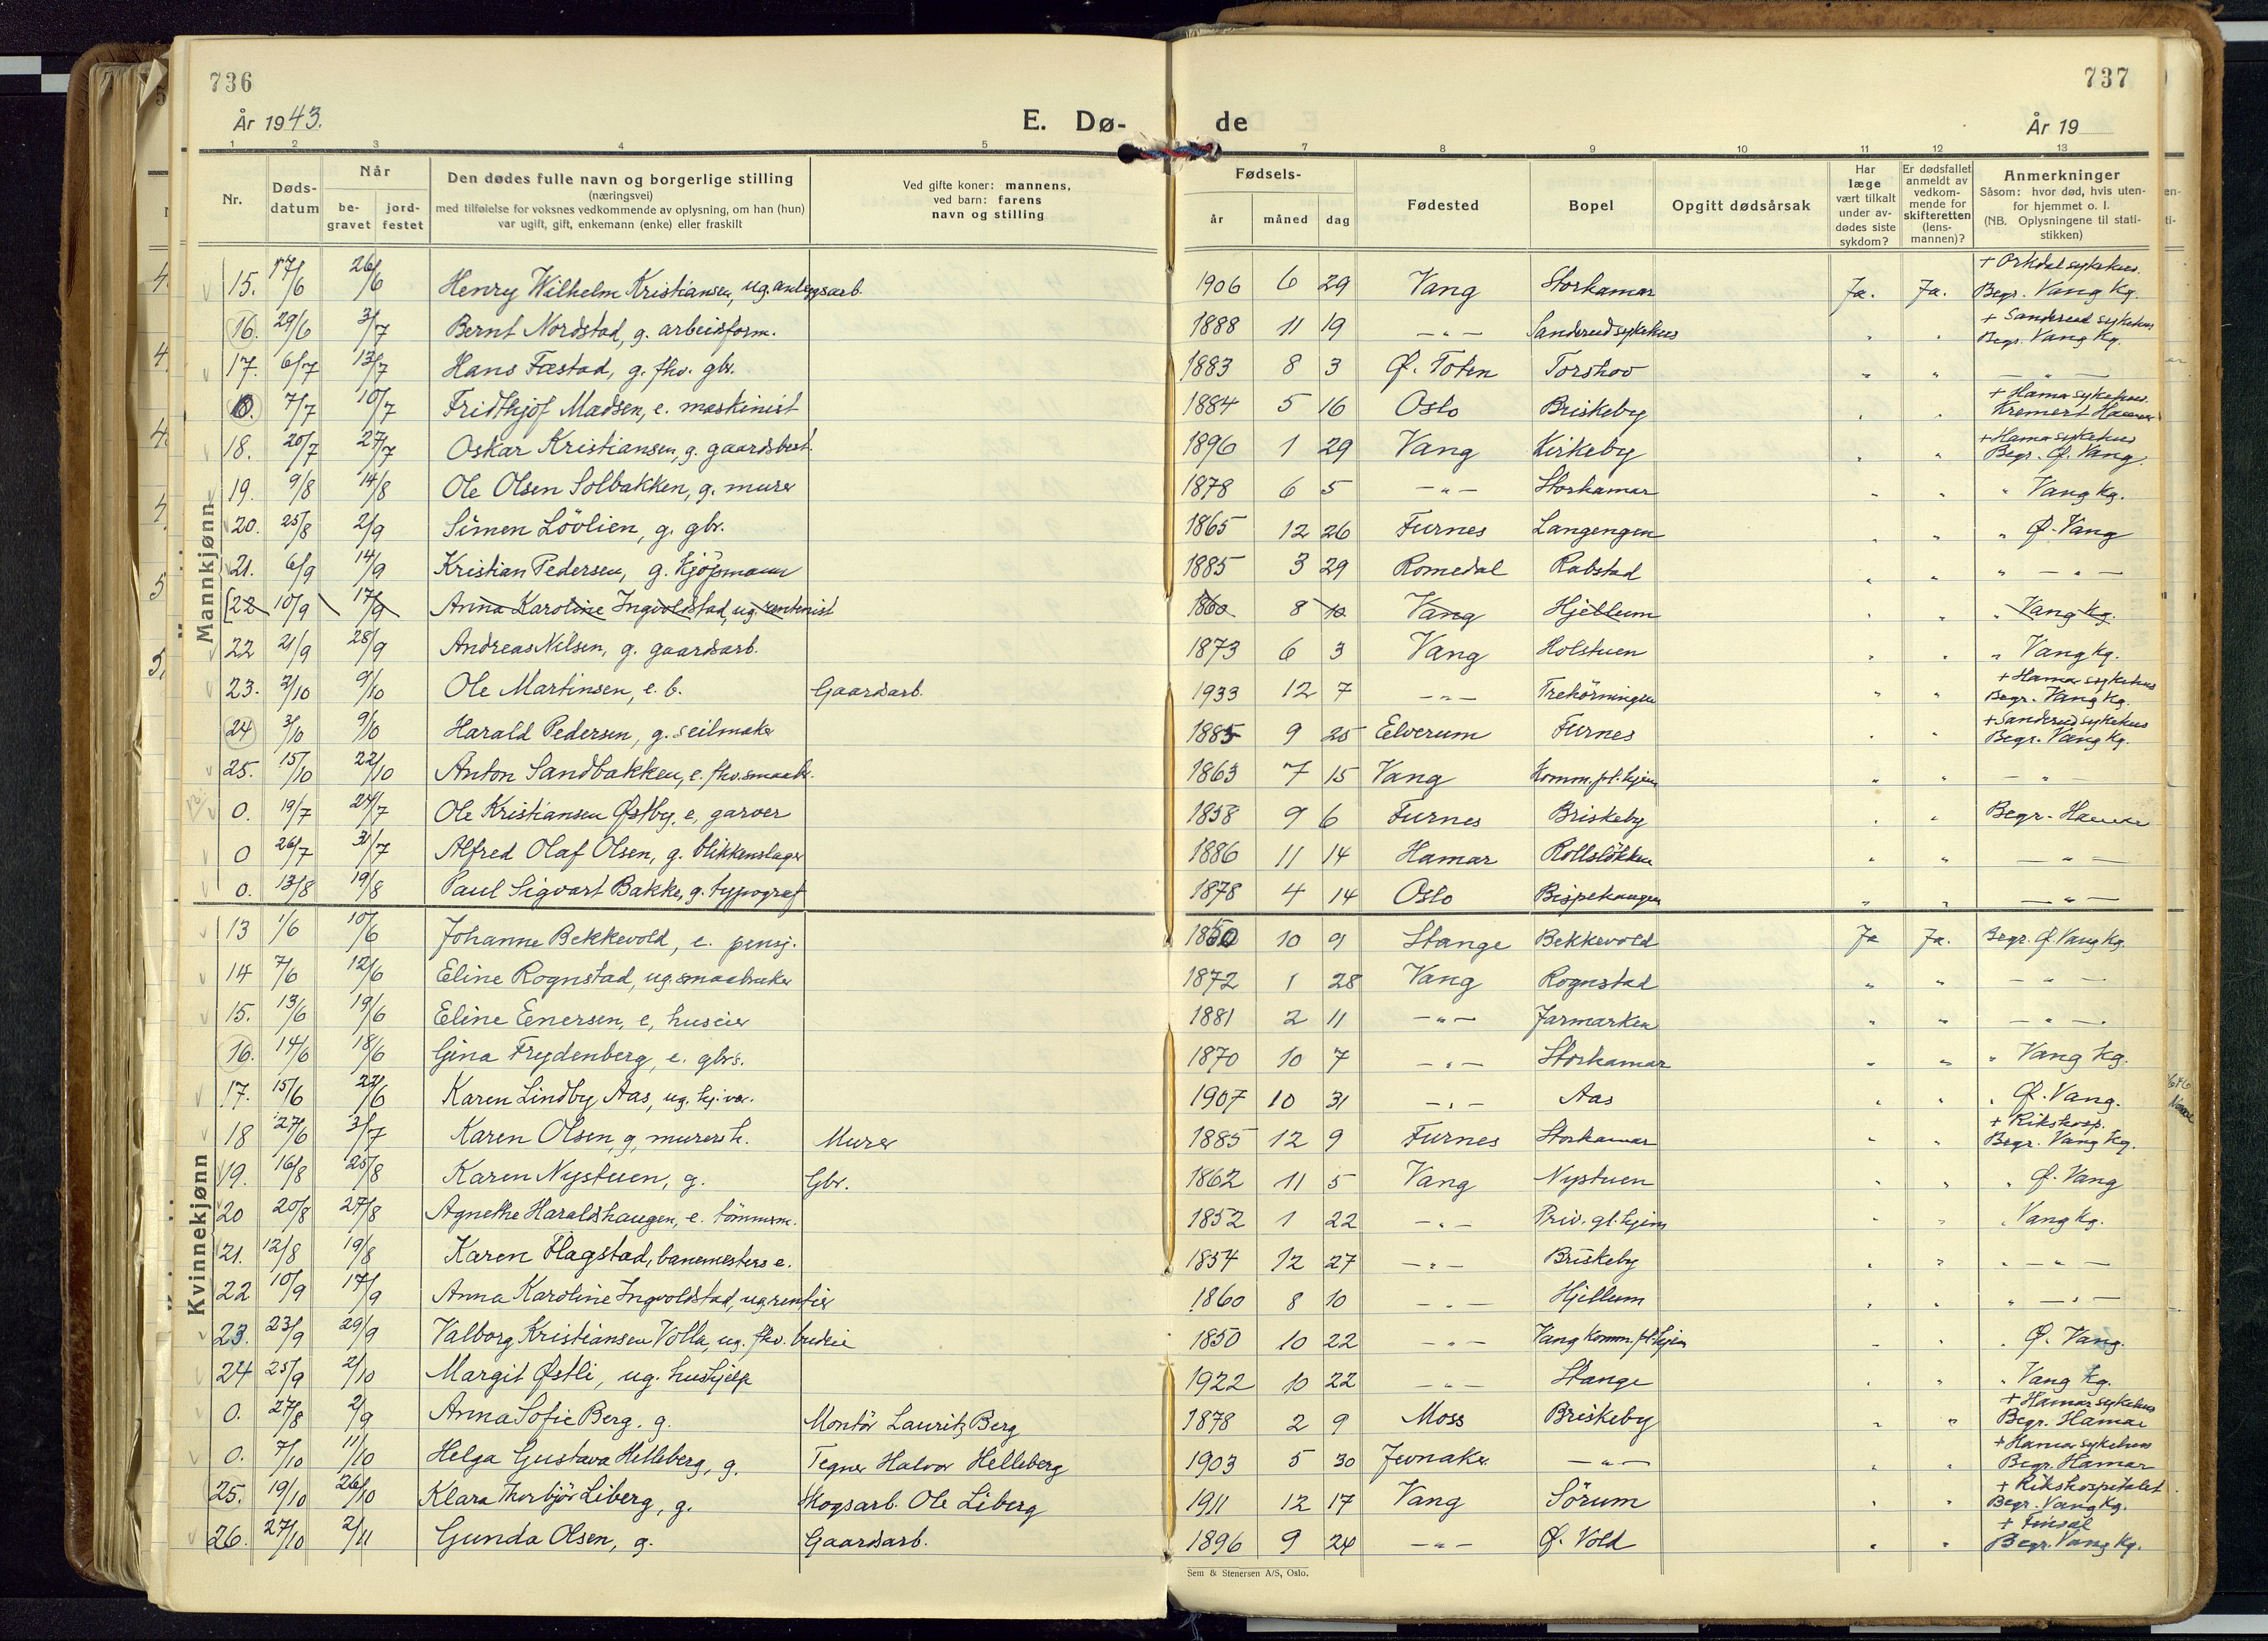 736
737
År 1943.
E. Dø-
de
År 19
1 2 3 4 5 7 8 9 10 11 12 13
Nr.
Døds-
datum
Når
be-
gravet
jord-
festet
Den dødes fulle navn og borgerlige stilling
(næringsvei)
med tilføielse for voksnes vedkommende av oplysning, om han (hun)
var ugift, gift, enkemann (enke) eller fraskilt
Ved gifte koner: mannens,
ved barn: farens
navn og stilling
Fødsels-
år måned dag
Fødested
Bopel
Opgitt dødsårsak
Har
læge
vært tilkalt
under av-
dødes siste
sykdom?
Er dødsfallet
anmeldt av
vedkom-
mende for
skifteretten
(lens-
mannen)?
Anmerkninger
Såsom: hvor død, hvis uten-
for hjemmet o. l.
(NB. Oplysningene til stati-
stikken)
Mannkjønn
15. 17/6 26/6 Henry Wilhelm Kristiansen, ug. anleggsarb. 1906 6 29 Vang Storhamar Ja. Ja. + Orkdal sykehus. Begr. Vang kg.
16. 29/6 3/7 Bernt Nordstad, g. arbeidsform. 1888 11 19 - " - Sanderud sykehus " " + Sanderud sykehus Begr. Vang kg.
17. 6/7 13/7 Hans Fæstad, g. fhv. gbr. 1883 8 3 Ø. Toten Torshov " " - " -
0. 7/7 10/7 Fridthjof Madsen, e. maskinist 1884 5 16 Oslo Briskeby " " + Hamar sykehus. Kremert Hamar
18. 20/7 27/7 Oskar Kristiansen, g. gaardsbest. 1896 1 29 Vang Kirkeby " " + Hamar sykehus Begr. Ø. Vang.
19. 9/8 14/8 Ole Olsen Solbakken, g. murer 1878 6 5 - " - Storhamar " " " Vang kg.
20. 25/8 2/9 Simen Lövlien, g. gbr. 1865 12 26 Furnes Langengen " " " Ø. Vang
21. 6/9 14/9 Kristian Pedersen, g. kjöpmann 1885 3 29 Romedal Rabstad " " " - " -
22 10/9 17/9 Anna Karoline Ingvoldstad, ug. rentenist 1860 8 10 Vang Hjellum " " " Vang kg.
22 21/9 28/9 Andreas Nilsen, g. gaardsarb. 1873 6 3 Vang Holstuen " " " Vang kg.
23. 2/10 9/10 Ole Martinsen, e. b. Gaardsarb. 1933 12 7 - " - Trehörningen " " + Hamar sykehus Begr. Vang kg.
24 3/10 9/10 Harald Pedersen, g. seilmaker 1885 9 25 Elverum Furnes " " + Sanderud sykehus Begr. Vang kg.
25. 15/10 22/10 Anton Sandbakken, e. fhv. smaabr. 1863 7 15 Vang Komm. pl. hjem " " - " -
0. 19/7 24/7 Ole Kristiansen Østby, e, garver 1858 9 6 Furnes Briskeby " " Begr. Hamar
0 26/7 31/7 Alfred Olaf Olsen, g. blikkenslager 1886 11 14 Hamar Rollsløkken " " - " -
0. 13/8 19/8 Paul Sigvart Bakke, g. typograf 1878 4 14 Oslo Bispehaugen " " - " -
Kvinnekjønn
13 1/6 10/6 Johanne Bekkevold, e. pensj. 1850 10 9 Stange Bekkevold Ja Ja. Begr. Ø. Vang kg.
14 7/6 12/6 Eline Rognstad, ug. smaabruker 1872 1 28 Vang Rognstad " " - " -
15. 13/6 19/6 Eline Enersen, e, huseier 1881 2 11 - " - Jarmarken " " - " -
16. 14/6 18/6 Gina Frydenberg, e. gbrs. 1870 10 7 - " - Storhamar " " " Vang kg.
17. 15/6 22/6 Karen Lindby Aas, ug. hj. vær. 1907 10 31 - " - Aas " " " Ø. Vang.
18 27/6 3/7 Karen Olsen, g, murersh. Murer 1885 12 9 Furnes Storhamar " " + Rikshosp. Begr. Vang kg.
19. 16/8 25/8 Karen Nystuen, g. Gbr. 1862 11 5 Vang Nystuen " " " Ø. Vang
20 20/8 27/8 Agnethe Haraldshaugen, e. tömmerm. 1852 1 22 - " - Priv. gl. hjem " " " Vang kg.
21. 12/8 19/8 Karen Flagstad, banemesters e. 1854 12 27 - " - Briskeby " " " - " -
22 10/9 17/9 Anna Karoline Ingvoldstad, ug. rentier 1860 8 10 - " - Hjellum " " " - " -
23. 23/9 29/9 Valborg Kristiansen Volla, ug. fhv. budeie 1850 10 22 - " - Vang Komm. pl. hjem " " " Ø. Vang.
24 25/9 2/10 Margit Østli, ug. hushjelp 1922 10 22 - " - Stange " " " Vang kg.
0. 27/8 2/9 Anna Sofie Berg. g. Montör Lauritz Berg 1878 2 9 Moss Briskeby " " + Hamar sykehus Begr. Hamar
0. 7/10 11/10 Helga Gustava Helleberg, g. Tegner Halvor Helleberg 1903 5 30 Jevnaker - " - " " + Hamar sykehus Begr. Hamar
25. 19/10 26/10 Klara Thorbjör Liberg, g. Skogsarb. Ole Liberg 1911 12 17 Vang Sörum " " + Rikshospitalet Begr. Vang kg.
26. 27/10 2/11 Gunda Olsen, g. Gaardsarb. 1896 9 24 - " - Ø. Vold " " + Finsal Begr. Vang kg.
Sem & Stenersen A/S, Oslo.